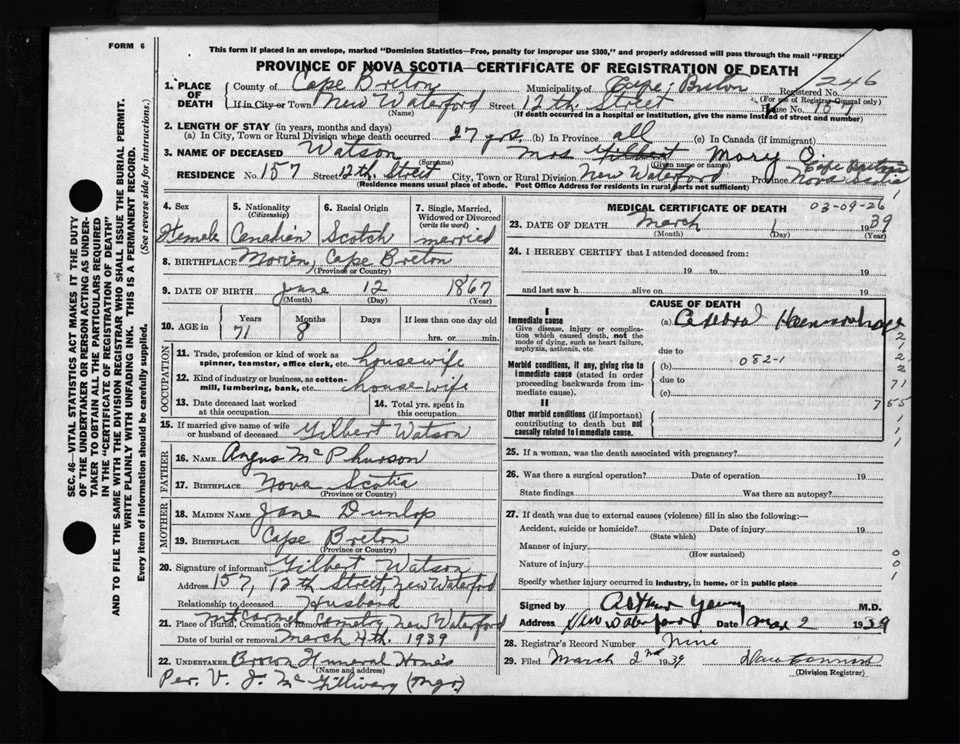 FORM 6
This form if placed in an envelope, marked "Dominion Statistics—Free, penalty for improper use $300," and properly addressed will pass through the mail "FREE"
PROVINCE OF NOVA SCOTIA—CERTIFICATE OF REGISTRATION OF DEATH
SEC. 46—VITAL STATISTICS ACT MAKES IT THE DUTY
OF THE UNDERTAKER OR PERSON ACTING AS UNDER-
TAKER TO OBTAIN ALL THE PARTICULARS REQUIRED
IN THE "CERTIFICATE OF REGISTRATION OF DEATH"
AND TO FILE THE SAME WITH THE DIVISION REGISTRAR WHO SHALL ISSUE THE BURIAL PERMIT.
WRITE PLAINLY WITH UNFADING INK. THIS IS A PERMANENT RECORD.
Every item of information should be carefully supplied. (See reverse side for instructions.)
1. PLACE OF DEATH County of Cape Breton Municipality of Cape Breton Registered No. 246
(For use of Registrar General only)
If in City or Town New Waterford Street 12th. Street House No. 157
(Name) (If death occurred in a hospital or institution, give the name instead of street and number)
2. LENGTH OF STAY (in years, months and days)
(a) In City, Town or Rural Division where death occurred 27 yrs (b) In Province all (c) In Canada (if immigrant)
3. NAME OF DECEASED Watson Mrs Gilbert Mary
(Surname) (Given name or names)
RESIDENCE No. 157 Street 12th. Street City, Town or Rural Division New Waterford Province Cape Breton Nova Scotia
(Residence means usual place of abode. Post Office Address for residents in rural parts not sufficient)
4. Sex Female
5. Nationality (Citizenship) Canadian
6. Racial Origin Scotch
7. Single, Married, Widowed or Divorced (write the word) married
8. BIRTHPLACE Morien, Cape Breton
(Province or Country)
9. DATE OF BIRTH June 12 1867
(Month) (Day) (Year)
10. AGE in Years 71 Months 8 Days If less than one day old
hrs. or min.
OCCUPATION
11. Trade, profession or kind of work as spinner, teamster, office clerk, etc. housewife
12. Kind of industry or business, as cotton-mill, lumbering, bank, etc. housewife
13. Date deceased last worked at this occupation
14. Total yrs. spent in this occupation
15. If married give name of wife or husband of deceased Gilbert Watson
FATHER
16. NAME Angus McPhurson
17. BIRTHPLACE Nova Scotia
(Province or Country)
MOTHER
18. MAIDEN NAME Jane Dunlop
19. BIRTHPLACE Cape Breton
(Province or Country)
20. Signature of informant Gilbert Watson
Address 157, 12th Street, New Waterford
Relationship to deceased Husband
21. Place of Burial, Cremation or Removal Mt Carmel Cemetry New Waterford
Date of burial or removal March 4th. 1939
22. UNDERTAKER Brown Funeral Home's
(Name and address)
Per. V. J. McGillivary (Mgr.)
MEDICAL CERTIFICATE OF DEATH 03-09-26
23. DATE OF DEATH March 1 1939
(Month) (Day) (Year)
24. I HEREBY CERTIFY that I attended deceased from:
19 to 19
and last saw h alive on 19
CAUSE OF DEATH
I
Immediate cause
Give disease, injury or complication which caused death, not the mode of dying, such as heart failure, asphyxia, asthenia, etc
(a) Cerebral Haemorrhage
due to
Morbid conditions, if any, giving rise to immediate cause (stated in order proceeding backwards from immediate cause).
(b) 082-1
due to
(c)
II
Other morbid conditions (if important) contributing to death but not causally related to immediate cause.
2
2
2
71
7 55
1
1
25. If a woman, was the death associated with pregnancy?
26. Was there a surgical operation? Date of operation 19
State findings Was there an autopsy?
27. If death was due to external causes (violence) fill in also the following:—
Accident, suicide or homicide? Date of injury 19
(State which)
Manner of injury
(How sustained)
Nature of injury
Specify whether injury occurred in industry, in home, or in public place
0
0
1
Signed by Arthur M.D.
Address New Waterford Date Mar 2 1939
28. Registrar's Record Number Nine
29. Filed March 2nd 1939
(Division Registrar)